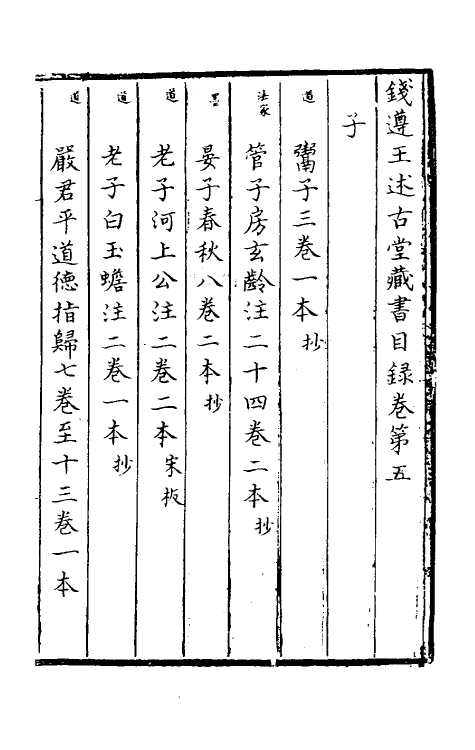 錢遵王述古堂藏書目録卷第五
子
道 鬻子三卷一本 抄
法家 管子房玄齡注二十四卷二本 抄
墨 晏子春秋八卷二本 抄
道 老子河上公注二卷二本 宋板
道 老子白玉蟾注二卷一本 抄
道 嚴君平道德指歸七卷至十三卷一本